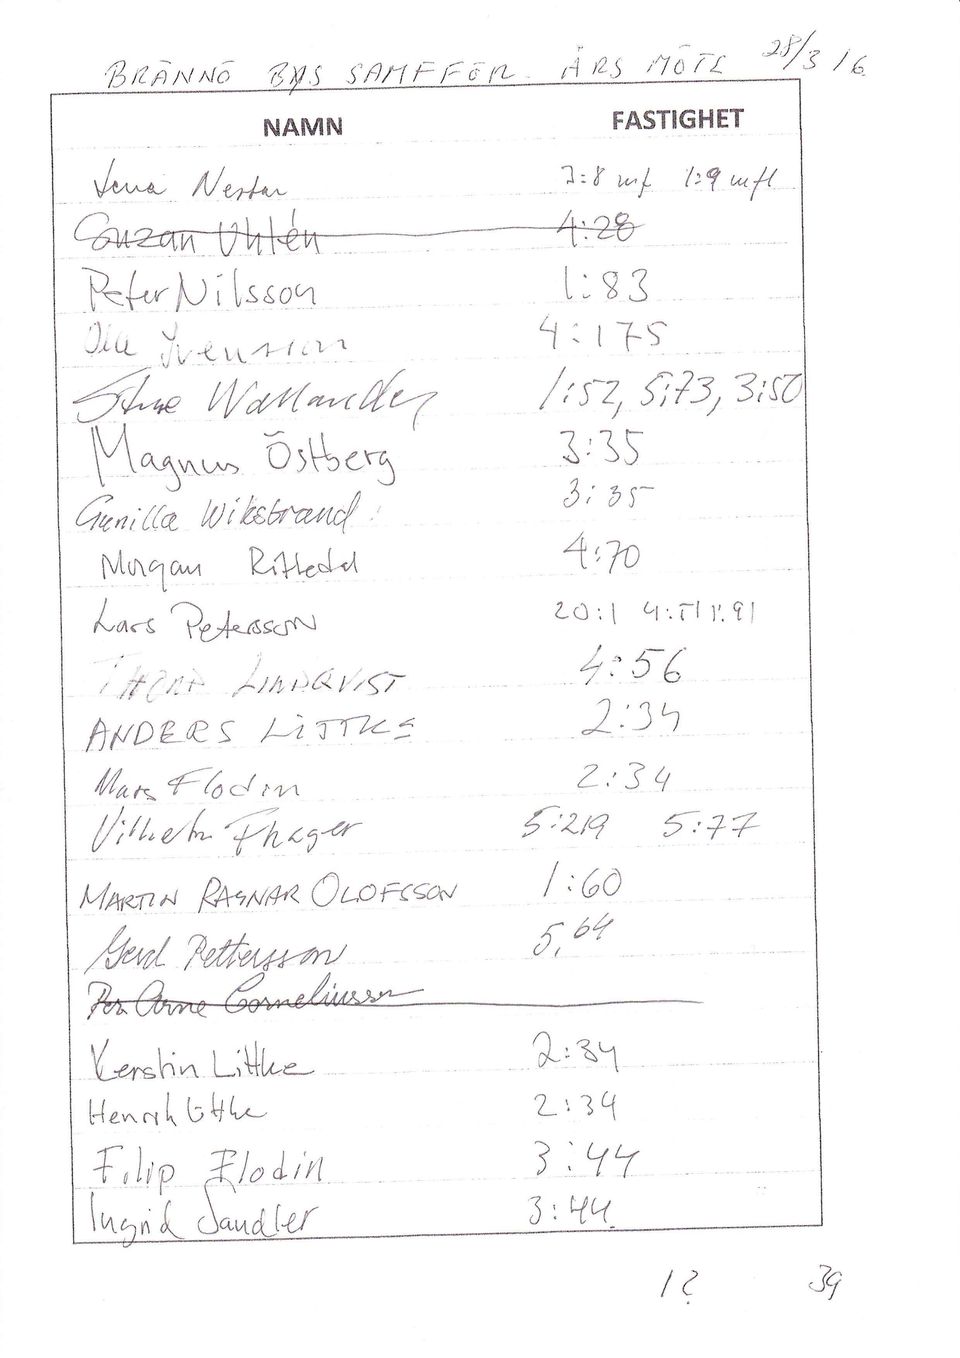 BRÄNNÖ BYS SAMFFÖR. ÅRS MÖTE 28/3 16
NAMN FASTIGHET
Lena Nestor 3:8 mfl 1:9 mfl
Suzan Uhlén 4:28
Peter Nilsson 1:83
Ola Svensson 4:175
Wallander 1:52, 5:73, 3:50
Magnus Östberg 3:35
Gunilla Wikstrand 3:35
Morgan 4:70
Lars Petersson 20:1 1:91
LINDQVIST 4:56
ANDERS LITTKE 2:34
Mats Flodin 2:34
Vilhelm Fhager 5:219 5:77
MARTIN RAGNAR OLOFSSON 1:60
Gerd Pettersson 5,64
Per Arne Corneliusson
Kerstin Littke 2:34
Henrik Littke 2:34
Filip Flodin 3:44
Ingrid Sandler 3:44
1? 39